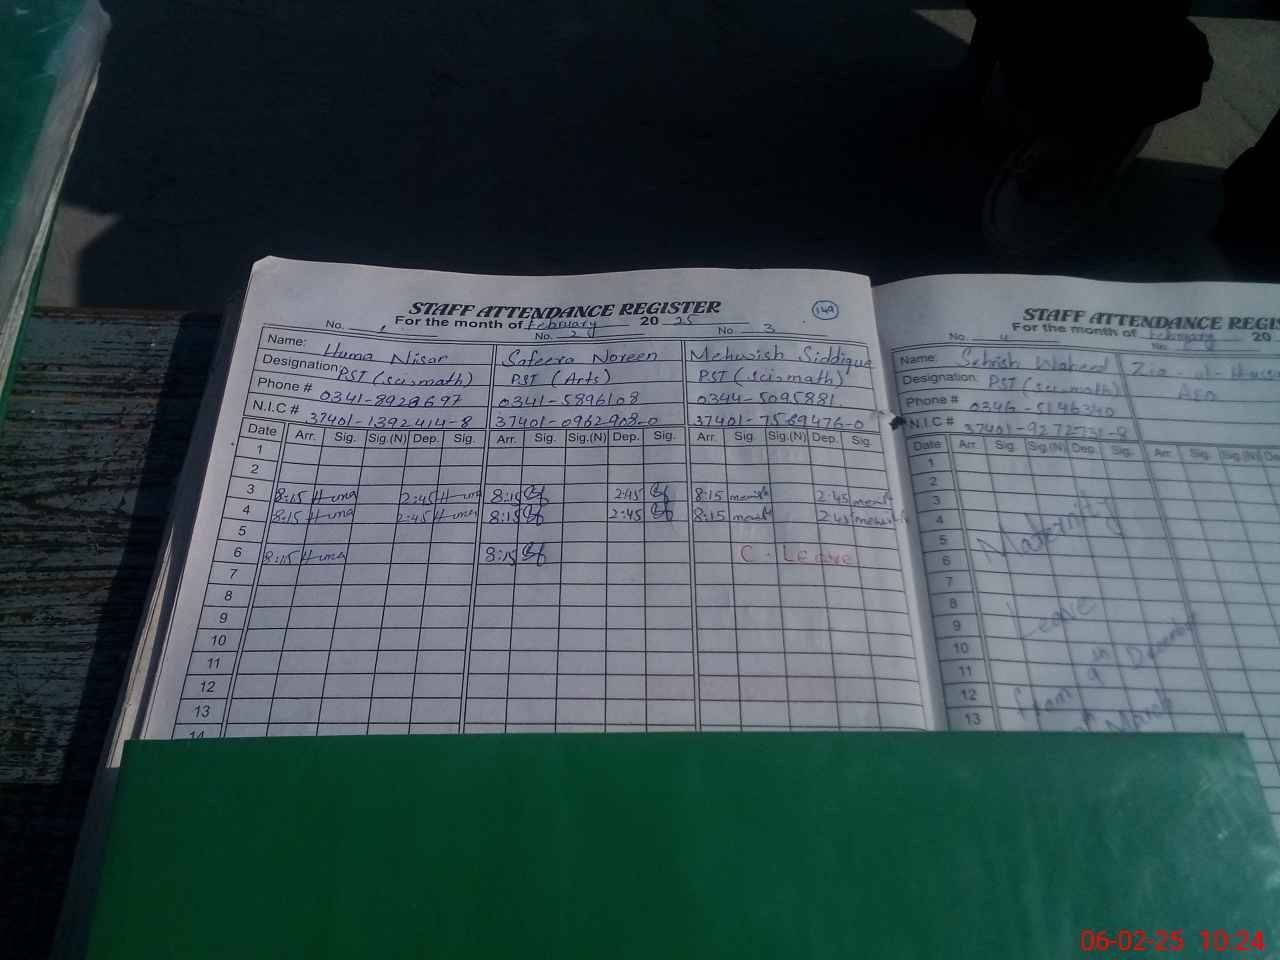 STAFF ATTENDANCE REGISTER 149
For the month of February 20 25
No. 1 No. 2 No. 3
Name: Huma Nisar Safeera Noreen Mehwish Siddique
Designation PST (sci-math) PST (Arts) PST (sci-math)
Phone # 0341-8928697 0341-5896108 0344-5095881
N.I.C # 37401-1392414-8 37401-0962908-0 37401-7569476-0
Date Arr. Sig. Sig.(N) Dep. Sig. Arr. Sig. Sig.(N) Dep. Sig. Arr. Sig. Sig.(N) Dep. Sig.
1
2
3 8:15 Huma 2:45 Huma 8:15 2:45 8:15 2:45
4 8:15 Huma 2:45 Huma 8:15 2:45 8:15 2:45
5
6 8:15 Huma 8:15 C-Leave
7
8
9
10
11
12
13
14
STAFF ATTENDANCE REG
For the month of February 20
No. 4 No.
Name: Sehrish Waheed Zia-ul-
Designation: PST (sci-math)
Phone # 0346-5146340
N.I.C # 37401-9272731-8
Date Arr. Sig. Sig.(N) Dep. Sig. Arr. Sig. Sig.(N)
1
2
3
4
5
6
7
8
9
10
11
12
13
Maternity
Leave
From 9th December
March
06-02-25 10:24